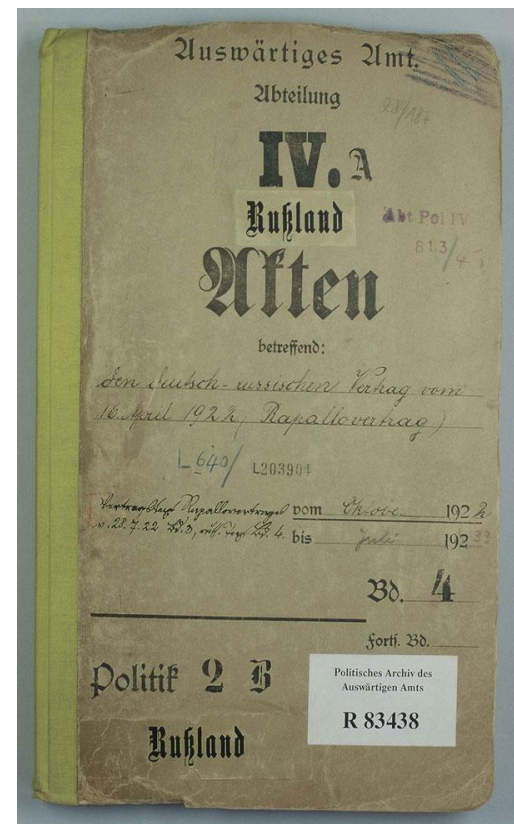 Auswärtiges Amt.
Abteilung
28/187
IV. A
Rußland
Abt Pol IV
813/4
Akten
betreffend:
den deutsch-russischen Vertrag vom
16. April 1922 (Rapallovertrag)
L 640/ L203904
Rapallovertrag vom Oktober 1922
v. 28.7.22 Bd. 3, Bd. 4. bis Juli 1933
Bd. 4
Forts. Bd.
Politik 2 B
Rußland
Politisches Archiv des
Auswärtigen Amts
R 83438